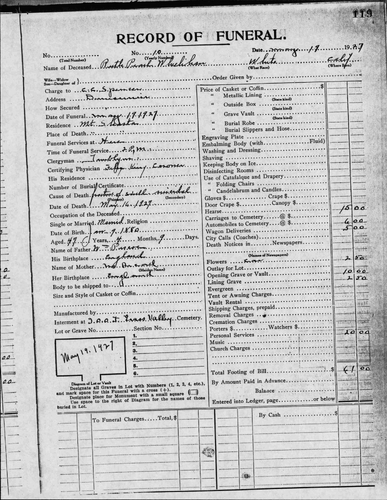 119
RECORD OF FUNERAL.
No. 10 Date May 17 1927
(Total Number) (Yearly Number)
Name of Deceased Ruth White Calif
(What Race) (Where Born)
Wife—Widow
Son—Daughter of
Order Given by
Charge to C. C. Spencer
Address Dunsmuir
How Secured
Date of Funeral May 19 1927
Residence Mt. Shasta
Place of Death
Funeral Services at Here
Time of Funeral Service 2 P.M.
Clergyman
Certifying Physician Coroner
His Residence
Number of Burial Certificate
Cause of Death
Date of Death May 16, 1927
Occupation of the Deceased
Single or Married Married Religion
Date of Birth 1880
Aged 47 Years Months 9 Days.
Name of Father
His Birthplace England
Name of Mother
Her Birthplace England
Body to be shipped
Size and Style of Casket or Coffin
Manufactured by
Interment at I.O.O.F. Grass Valley Cemetery.
Lot or Grave No. Section No.
May 19, 1927
Diagram of Lot or Vault
Designate all Graves in Lot with Numbers (1, 2, 3, 4, etc.),
and mark space for this Funeral with a cross (+).
Designate place for Monument with a small square
Use space to the right of Diagram for the names of those
Buried in Lot.
Price of Casket or Coffin
" Metallic Lining
" Outside Box
" Grave Vault
" Burial Robe
" Burial Slippers and Hose
Engraving Plate
Embalming Body (with Fluid)
Washing and Dressing
Shaving
Keeping Body on Ice
Disinfecting Rooms
Use of Catafalque and Drapery
" Folding Chairs
" Candelabrum and Candles
Gloves $ Crape $
Door Crape $ Canopy $
Hearse 15 00
Carriages to Cemetery @ $
Automobiles to Cemetery @ $ 6 00
Wagon Deliveries 5 00
City Calls (Coaches)
Death Notices in Newspapers
(Names of Newspapers)
Flowers 2 50
Outlay for Lot 10 00
Opening Grave or Vault 10 00
Lining Grave 2 50
Evergreen
Tent or Awning Charges
Vault Rental
Shipping Charges, prepaid
Removal Charges
Cremation Charges
Porters $ Watchers $
Personal Services 10 00
Music
Church Charges
Total Footing of Bill $ 61 00
By Amount Paid in Advance
Balance
Entered into Ledger, page or below.
To Funeral Charges Total, $ By Cash $